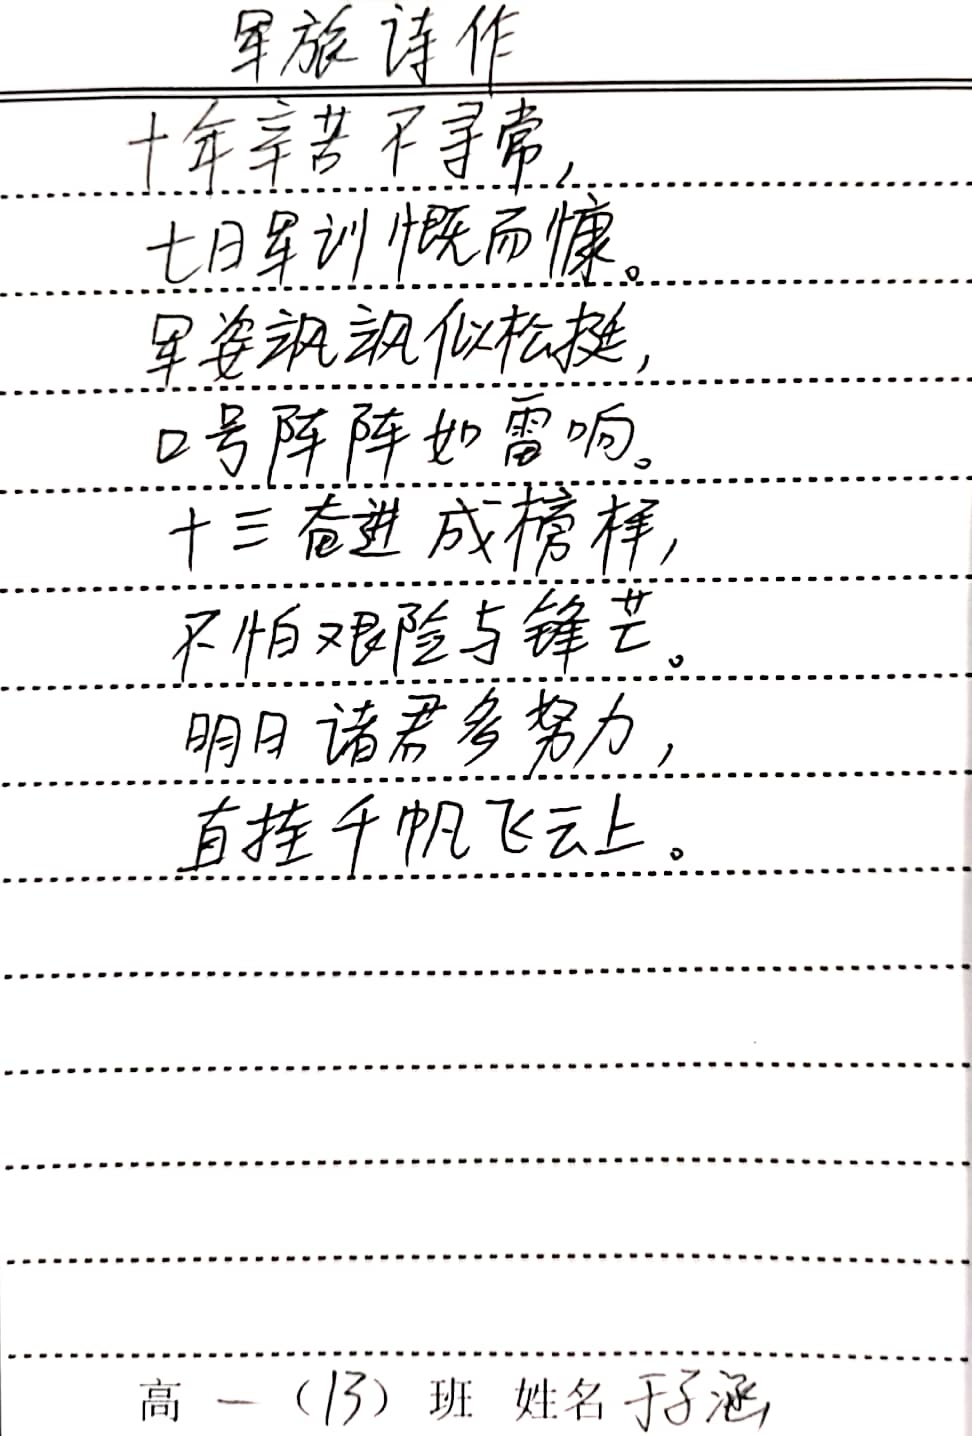 军旅诗作
十年辛苦不寻常，
七日军训慨而慷。
军姿飒飒似松挺，
口号阵阵如雷响。
十三奋进成榜样，
不怕艰险与锋芒。
明日诸君多努力，
直挂千帆飞云上。
高一（13）班 姓名 于子涵